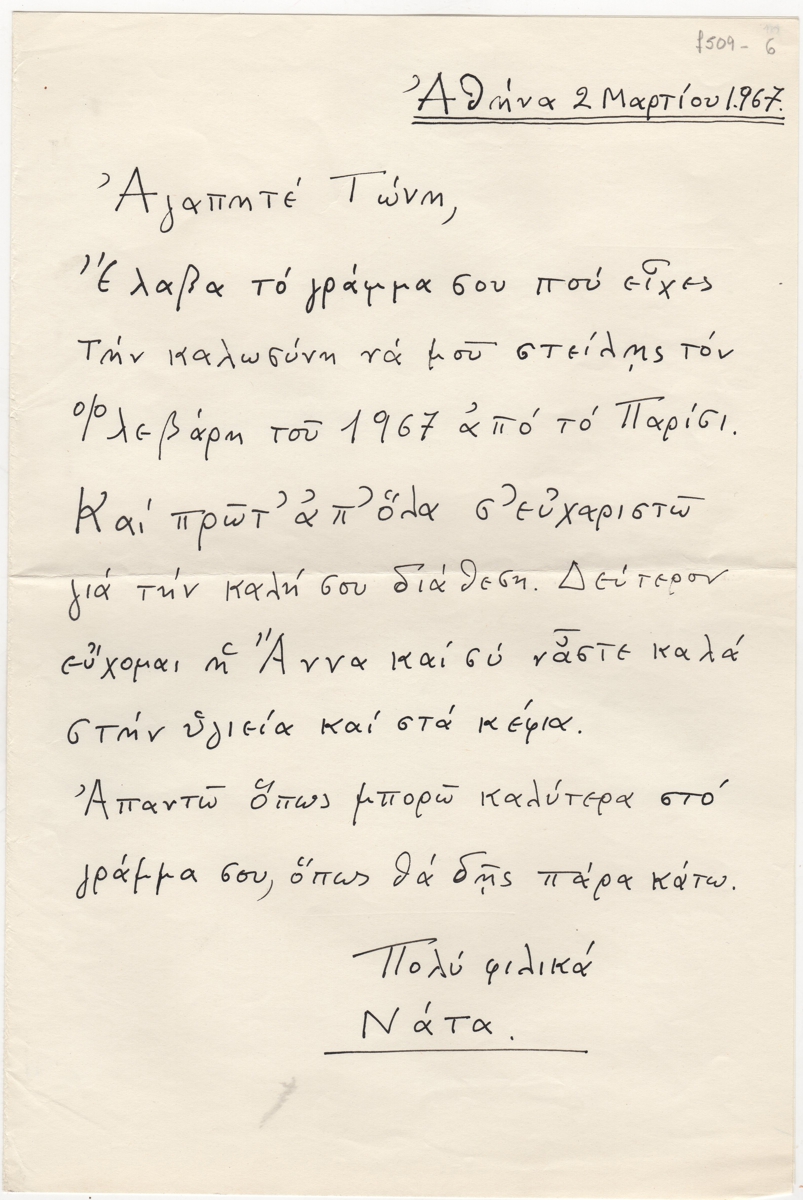 f509- 6
Ἀθήνα 2 Μαρτίου 1.967.
Ἀγαπητέ Τώνη,
Ἔλαβα τό γράμμα σου πού εἶχες
τήν καλωσύνη νά μοῦ στείλῃς τόν
Φλεβάρη τοῦ 1967 ἀπό τό Παρίσι.
Καί πρῶτ' ἀπ' ὅλα σ' εὐχαριστῶ
γιά τήν καλή σου διάθεση. Δεύτερον
εὔχομαι ἡ Ἄννα καί σύ νἆστε καλά
στήν ὑγιεία καί στά κέφια.
Ἀπαντῶ ὅπως μπορῶ καλύτερα στό
γράμμα σου, ὅπως θά δῇς πάρα κάτω.
Πολύ φιλικά
Νάτα.